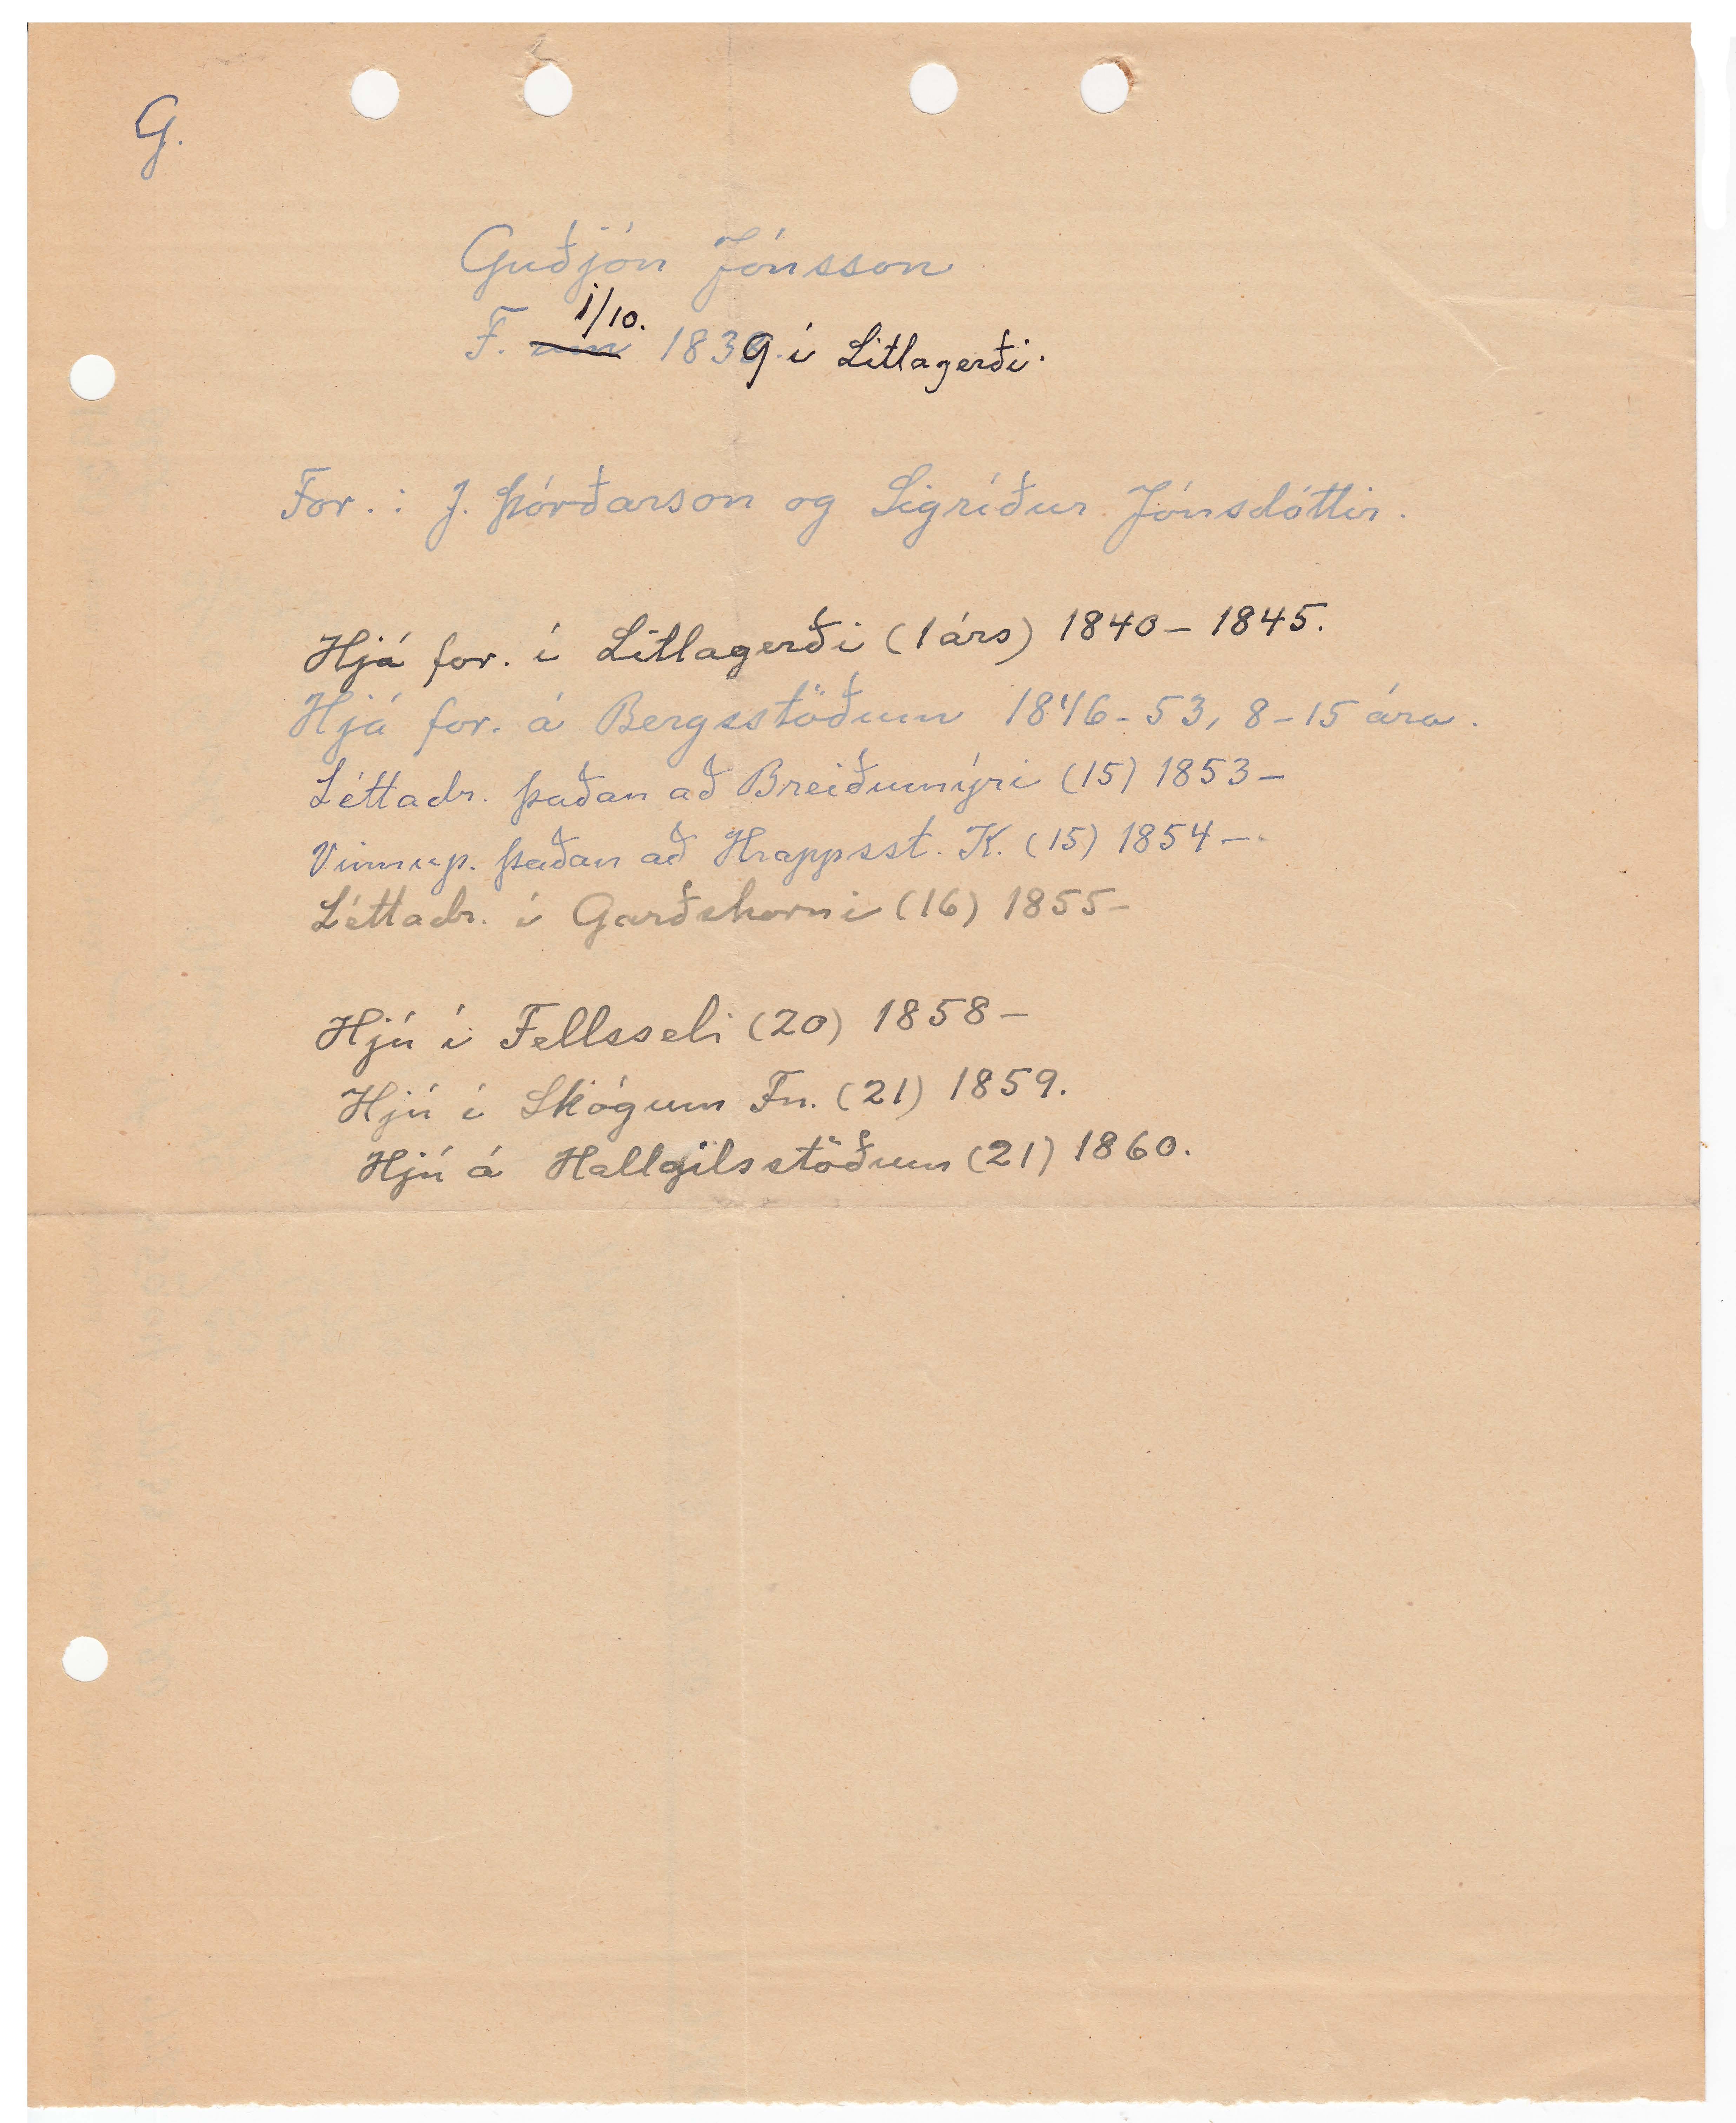 G.
Guðjón Jónsson
1/10.
F. um 1839 í Litlagerði.
For.: J. Þórðarson og Sigríður Jónsdóttir.
Hjá for. í Litlagerði (1 árs) 1840 – 1845.
Hjá for. á Bergsstöðum 1846 – 53, 8 – 15 ára.
Léttadr. þaðan að Breiðumýri (15) 1853 –
Vinnup. þaðan að Hrappsst. K. (15) 1854 –
Léttadr. í Garðshorni (16) 1855 –
Hjú í Fellsseli (20) 1858 –
Hjú í Skógum Fn. (21) 1859.
Hjú á Hallgilsstöðum (21) 1860.